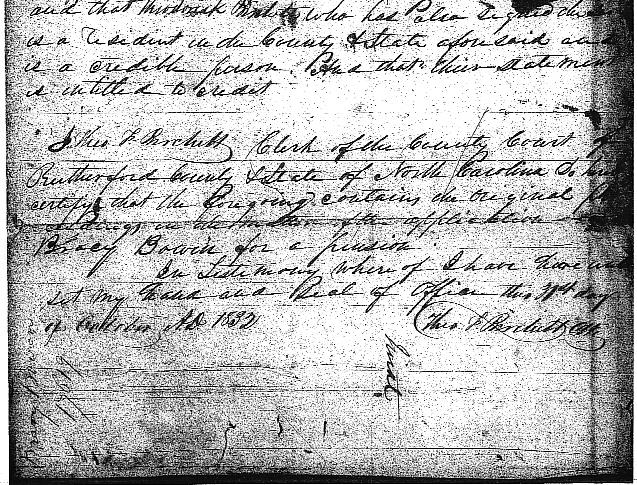 and that who has also signed the
is a resident in the County & State aforesaid and
is a credible person. And that their statement
is intitled to credit
I Theo F Birchett Clerk of the County Court of
Rutherford County & State of North Carolina do
certify that the foregoing contains the original
in the matter of the application
Bracy Bowin for a pension
In testimony whereof I have
set my hand and Seal of Office this day
of October AD 1832
Theo F Birchett Clk